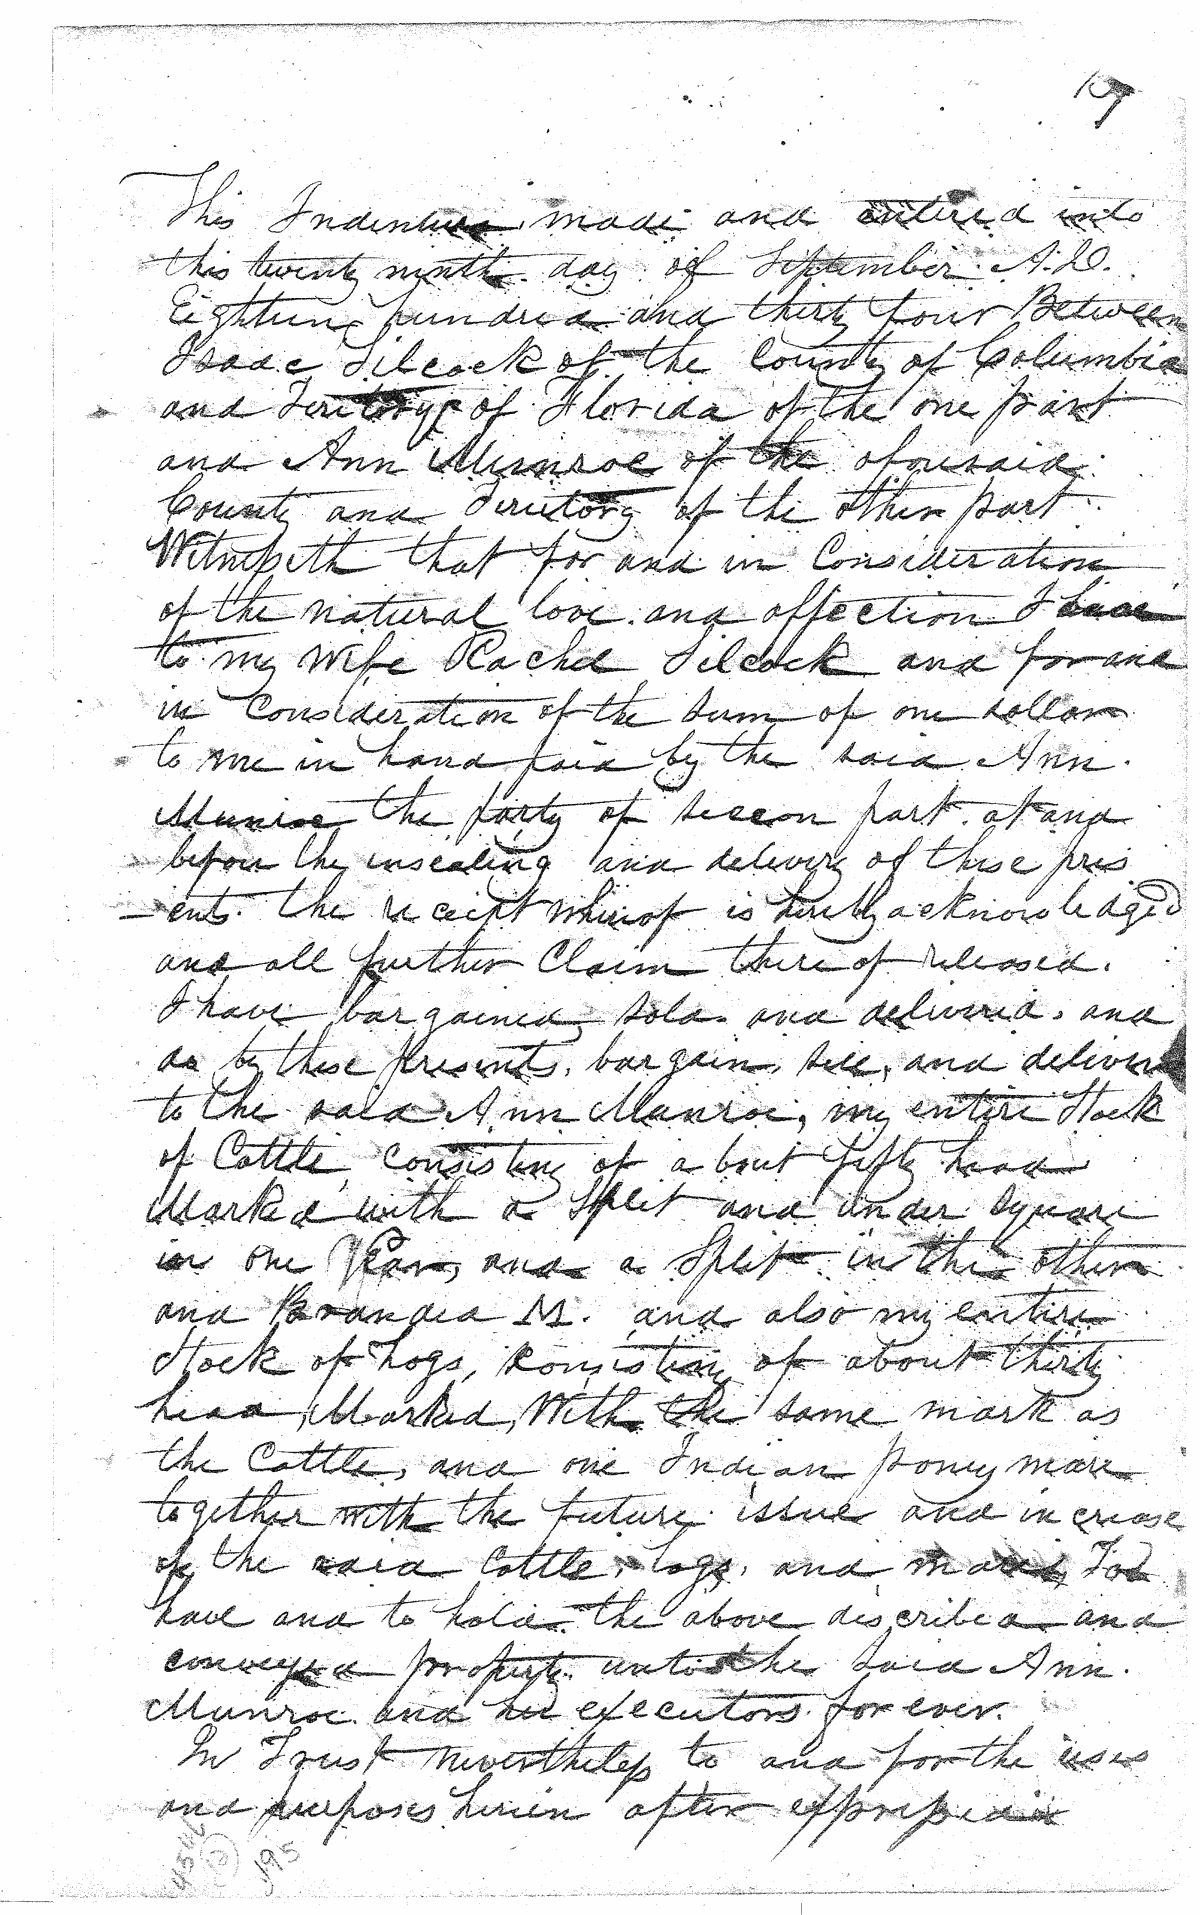 This Indenture made and entered into
this twenty ninth day of September A.D.
Eighteen hundred and thirty four Between
Isaac Silcock of the County of Columbia
and Territory of Florida of the one part
and Ann Munroe of the aforesaid
County and Territory of the other part
Witnesseth that for and in Consideration
of the natural love and affection I have
to my Wife Rachel Silcock and for and
in Consideration of the sum of one dollar
to me in hand paid by the said Ann
Munroe the party of seccon part at and
before the insealing and delivery of these pres
ents the receipt whereof is hereby acknowledged
and all further Claim there of released.
I have bargained, sold and delivered, and
do by these presents, bargain, sell, and deliver
to the said Ann Munroe, my entire Stock
of Cattle, consisting of a bout fifty head
Marked with a Split and under square
in one Ear, and a Split in the other
and Branded M. and also my entire
Stock of hogs, Consisting of about thirty
head, Marked, With the same mark as
the Cattle, and one Indian poney mare
together with the future issue and increase
of the said Cattle, hogs, and mares, To
have and to hold the above described and
conveyed property unto the said Ann
Munroe and her executors for ever.
In Trust nevertheless to and for the uses
and purposes herein after expressed
195